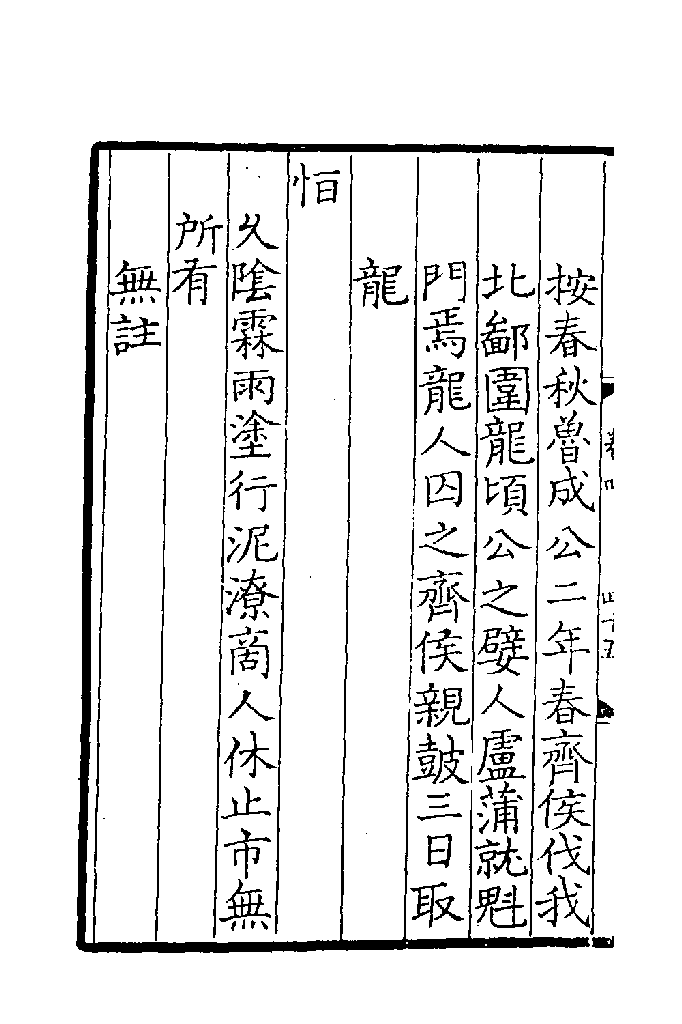 按春秋魯成公二年春齊侯伐我
北鄙圍龍頃公之嬖人盧蒲就魁
門焉龍人囚之齊侯親皷三日取
龍
恒
乆隂霖雨塗行泥潦商人休止市無
所有
無註